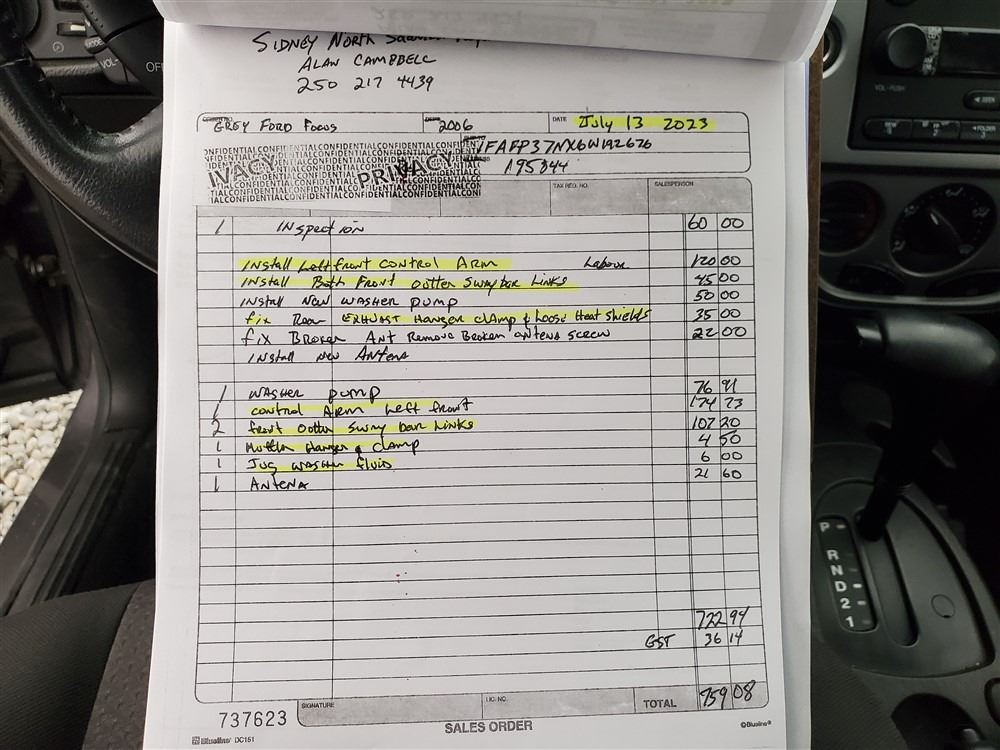 SIDNEY NORTH
ALAN CAMPBELL
250 217 4439
GREY FORD FOCUS 2006 DATE July 13 2023
1FAFP37NX6W192676
195844
PRIVACY
CONFIDENTIAL
TAX REG. NO. SALESPERSON
1 INspection 60 00
INstall Left front CONTROL ARM Labour 120 00
INstall Both Front outter Sway bar Links 45 00
INstall New WASHER pump 50 00
fix Rear EXHUAST Hanger clAmp & Loose Heat shields 35 00
fix BROKEN Ant Remove Broken antena screw 22 00
INstall New Antena
1 WASHER pump 76 91
1 control ARM Left front 174 73
2 front outter Sway bar Links 107 20
1 Muffler Hanger & clamp 4 50
1 Jug WASHER fluid 6 00
1 ANTENA 21 60
722 94
GST 36 14
SIGNATURE LIC. NO. TOTAL 759 08
737623
SALES ORDER
Blueline DC151
©Blueline®
VOL-PUSH
MODE
VOL-
OFF
P
R
N
D
2
1